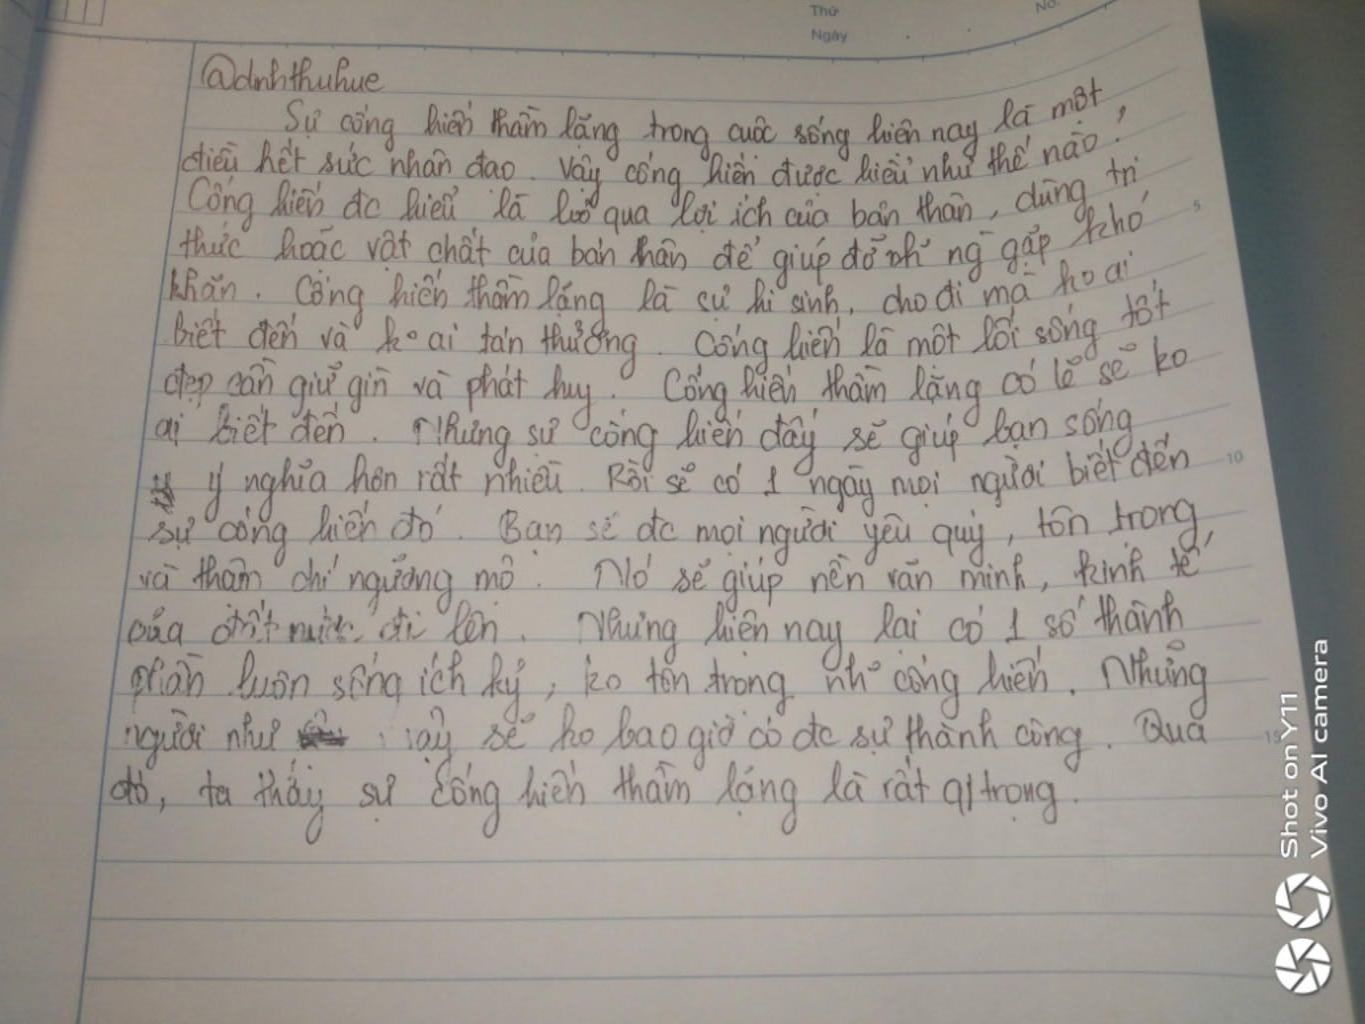 Thứ
No.
Ngày
@dnhthuhue
Sự cống hiến thầm lặng trong cuộc sống hiện nay là một
điều hết sức nhân đạo. Vậy cống hiến được hiểu như thế nào?
Cống hiến đc hiểu là bỏ qua lợi ích của bản thân, dùng tri
thức hoặc vật chất của bản thân để giúp đỡ nh~ ng gặp khó
khăn. Cống hiến thầm lặng là sự hi sinh, cho đi mà ko ai
biết đến và ko ai tán thưởng. Cống hiến là một lối sống tốt
đẹp cần giữ gìn và phát huy. Cống hiến thầm lặng có lẽ sẽ ko
ai biết đến. Nhưng sự cống hiến đấy sẽ giúp bạn sống
ý nghĩa hơn rất nhiều. Rồi sẽ có 1 ngày mọi người biết đến
sự cống hiến đó. Bạn sẽ đc mọi người yêu quý, tôn trọng,
và thậm chí ngưỡng mộ. Nó sẽ giúp nền văn minh, kinh tế
của đất nước đi lên. Nhưng hiện nay lại có 1 số thành
phần luôn sống ích kỷ, ko tôn trọng cống hiến. Những
người như vậy sẽ ko bao giờ có đc sự thành công. Qua
đó, ta thấy sự cống hiến thầm lặng là rất q/trọng.
5
10
15
Shot on Y11
Vivo AI camera